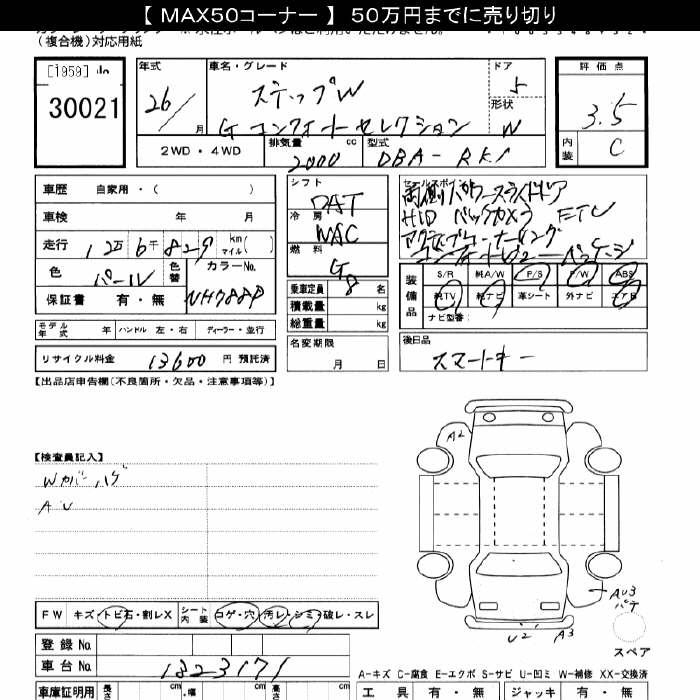 【 MAX50コーナー 】 50万円までに売り切り
(複合機)対応用紙
[1959]
30021
年式
26/
月
車名・グレード
ステップW
G コンフォートセレクション
ドア
5
形状
W
評価点
3.5
内装
C
2WD・4WD
排気量
2000
cc
型式
DBA-RK1
車歴 自家用・( )
車検 年 月
走行 12万6千829 km マイル( )
色 パール
色替
カラーNo.
NH788P
保証書 有・無
シフト
DAT
冷房
WAC
燃料
G
乗車定員 8 名
積載量 kg
総重量 kg
セールスポイント
両側パワースライドドア
HID バックカメラ ETC
装備品
S/R 純A/W P/S P/W ABS
純TV 純ナビ 革シート 外ナビ エアB
ナビ型番:
モデル年式 年 ハンドル 左・右 ディーラー・並行
リサイクル料金 13600 円 預託済
名変期限
月 日
後日品
スマートキー
【出品店申告欄(不良箇所・欠品・注意事項等)】
【検査員記入】
Wカバーハゲ
AU
A2
AU3
バケ
U2
A3
スペア
FW キズ・トビ石・割レX
シート内装
コゲ・穴・汚レ・シミ・破レ・スレ
登録No.
車台No. 1323171
A-キズ C-腐食 E-エクボ S-サビ U-凹ミ W-補修 XX-交換済
車庫証明用 長さ cm ・幅 cm 高さ cm
工具 有・無 ジャッキ 有・無